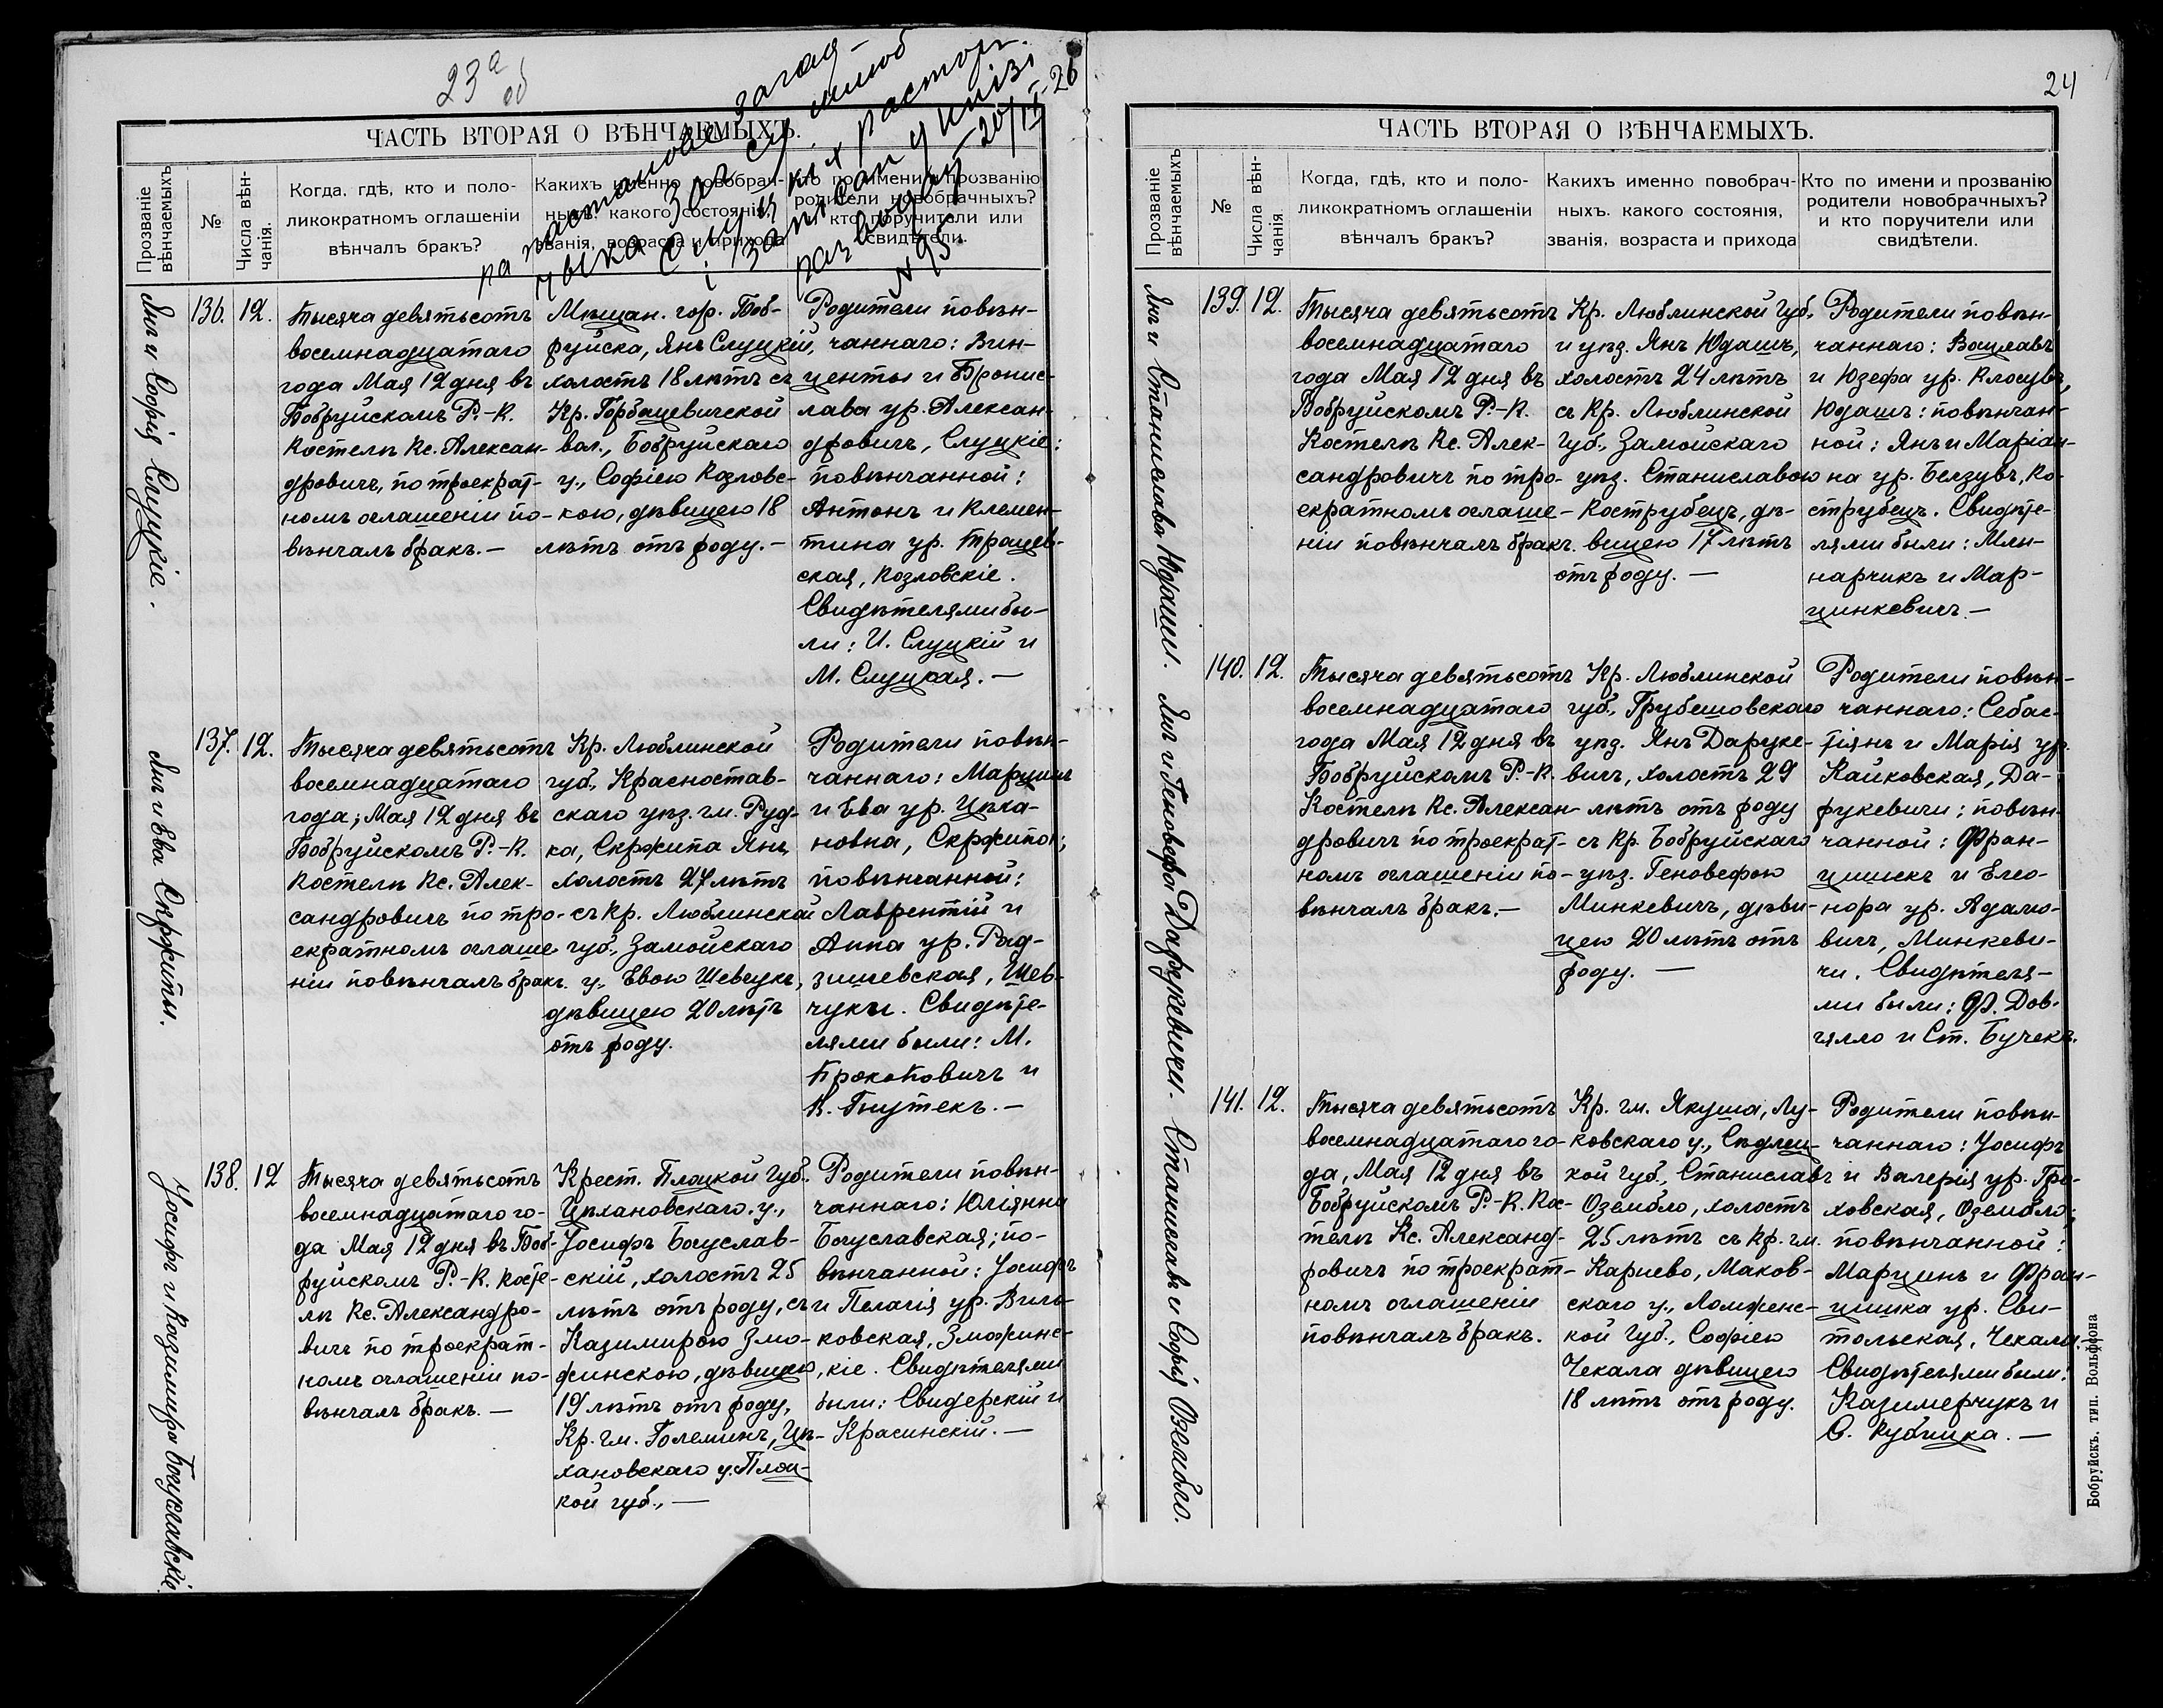 23а об
24
ЧАСТЬ ВТОРАЯ О ВѢНЧАЕМЫХЪ.
Прозваніе вѣнчаемыхъ
№
Числа вѣнчанія.
Когда, гдѣ, кто и поло-
ликократномъ оглашеніи
вѣнчалъ бракъ?
Какихъ именно новобрач-
ныхъ. какого состоянія,
званія, возраста и прихода
Кто по имени и прозванію
родители новобрачныхъ?
и кто поручители или
свидѣтели.
па пастанове загад-
чыка Загс'у шлюб
Слуцкіх растор.
і запісан у кнізі
разводаў 20/II-26
№ 95
Янъ и Софія Слуцкіе.
136.
12.
Тысяча девятьсотъ
восемнадцатаго
года Мая 12 дня въ
Бобруйскомъ Р.-К.
Костелѣ Кс. Алексан-
дровичъ, по троекрат-
номъ оглашеніи по-
вѣнчалъ бракъ.—
Мѣщан. гор. Боб-
руйска, Янъ Слуцкій,
холостъ 18 лѣтъ съ
Кр. Горбацевичской
вол., Бобруйскаго
у., Софіею Козловс-
кою, дѣвицею 18
лѣтъ отъ роду.—
Родители повѣн-
чаннаго: Вин-
центы и Бронис-
лава ур. Алексан-
дровичъ, Слуцкіе:
повѣнчанной:
Антонъ и Клемен-
тина ур. Трацев-
ская, Козловскіе.
Свидѣтелями бы-
ли: И. Слуцкій и
М. Слуцкая.—
Янъ и Ева Скржипы.
137.
12.
Тысяча девятьсотъ
восемнадцатаго
года, Мая 12 дня въ
Бобруйскомъ Р.-К.
Костелѣ Кс. Алек-
сандровичъ по тро-
екратномъ оглаше
ніи повѣнчалъ бракъ.
Кр. Люблинской
губ., Красностав-
скаго уѣз. гм. Руд-
ка, Скржипа Янъ
холостъ 27 лѣтъ
съ кр. Люблинской
губ., Замойскаго
у., Евою Шевчукъ,
дѣвицею 20 лѣтъ
отъ роду.
Родители повѣн-
чаннаго: Марцинъ
и Ева ур. Цѣха-
новна, Скржипы;
повѣнчанной:
Лаврентій и
Анна ур. Рад-
зишевская, Шев-
чуки. Свидѣте-
лями были: М.
Прокоповичъ и
В. Гнутекъ.—
Іосифъ и Казимира Богуславскіе
138.
12
Тысяча девятьсотъ
восемнадцатаго го-
да Мая 12 дня въ Боб-
руйскомъ Р.-К. Косте-
лѣ Кс. Александро-
вичъ по троекрат-
номъ оглашеніи по-
вѣнчалъ бракъ.—
Крест. Плоцкой Губ.
Цѣхановскаго. у.,
Іосифъ Богуслав-
скій, холостъ 25
лѣтъ отъ роду, съ
Казимирою Змо-
ржинскою, дѣвицею,
19 лѣтъ отъ роду,
Кр. гм. Големинъ, Цѣ-
хановскаго у. Плоц-
кой губ.,—
Родители повѣн-
чаннаго: Юліянна
Богуславская; по-
вѣнчанной: Іосифъ
и Пелагія ур. Виль-
ковская, Зморжинс-
кіе. Свидѣтелями
были: Свидерскій и
Красинскій.—
ЧАСТЬ ВТОРАЯ О ВѢНЧАЕМЫХЪ.
Прозваніе вѣнчаемыхъ
№
Числа вѣнчанія.
Когда, гдѣ, кто и поло-
ликократномъ оглашеніи
вѣнчалъ бракъ?
Какихъ именно повобрач-
ныхъ. какого состоянія,
званія, возраста и прихода
Кто по имени и прозванію
родители новобрачныхъ?
и кто поручители или
свидѣтели.
Янъ и Станислава Юдаши.
139.
12.
Тысяча девятьсотъ
восемнадцатаго
года Мая 12 дня въ
Бобруйскомъ Р.-К.
Костелѣ Кс. Алек-
сандровичъ по тро-
екратномъ оглаше-
ніи повѣнчалъ бракъ.
Кр. Люблинской Губ.
и уѣз. Янъ Юдашъ,
холостъ 24 лѣтъ
съ Кр. Люблинской
Губ., Замойскаго
уѣз. Станиславою
Кострубецъ, дѣ-
вицею 17 лѣтъ
отъ роду.—
Родители повѣн-
чаннаго: Вацлавъ
и Юзефа ур. Клосувъ,
Юдашъ: повѣнчан-
ной: Янъ и Маріан-
на ур. Белзувъ, Ко-
струбецъ. Свидѣте-
лями были: Мли-
нарчикъ и Мар-
цинкевичъ.—
Янъ и Геновефа Дарукевичи.
140.
12.
Тысяча девятьсотъ
восемнадцатаго
года Мая 12 дня въ
Бобруйскомъ Р.-К.
Костелѣ Кс. Алексан-
дровичъ по троекрат-
номъ оглашеніи по-
вѣнчалъ бракъ.—
Кр. Люблинской
губ., Грубешовскаго
уѣз. Янъ Даруке-
вичъ, холостъ 29
лѣтъ отъ роду
съ кр. Бобруйскаго
уѣз. Геновефою
Минкевичъ, дѣви-
цею 20 лѣтъ отъ
роду.—
Родители повѣн-
чаннаго: Себас-
тіянъ и Марія ур.
Кайковская, Да-
рукевичи; повѣн-
чанной: Фран-
цишекъ и Елео-
нора ур. Адамо-
вичъ, Минкеви-
чи. Свидѣтеля-
ми были: Ф. Дов-
гялло и Ст. Бучекъ.
Станиславъ и Софія Озембло.
141.
12.
Тысяча девятьсотъ
восемнадцатаго го-
да, Мая 12 дня въ
Бобруйскомъ Р.-К. Кос-
телѣ Кс. Александ-
ровичъ по троекрат-
номъ оглашеніи
повѣнчалъ бракъ.
Кр. гм. Якуша, Лу-
ковскаго у., Сѣдлец-
кой Губ., Станиславъ
Озембло, холостъ
25 лѣтъ съ кр. гм.
Карнево, Маков-
скаго у., Ломженс-
кой Губ., Софіею
Чекала дѣвицею
18 лѣтъ отъ роду.
Родители повѣн-
чаннаго: Іосифъ
и Валерія ур. Гро-
ховская, Озембло;
повѣнчанной:
Марцинъ и Фран-
цишка ур. Сви-
тольская, Чекалы.
Свидѣтелями были:
Казимерчукъ и
С. Кубицка.—
Бобруйскъ, тип. Вольфсона